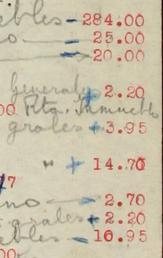 ebles - 284.00
no - 25.00
- 20.00
Generales + 2.20
00 Rta. Inmueble
grales + 3.95
" + 14.70
/7
no - 2.70
grales + 2.20
ebles - 16.95
00